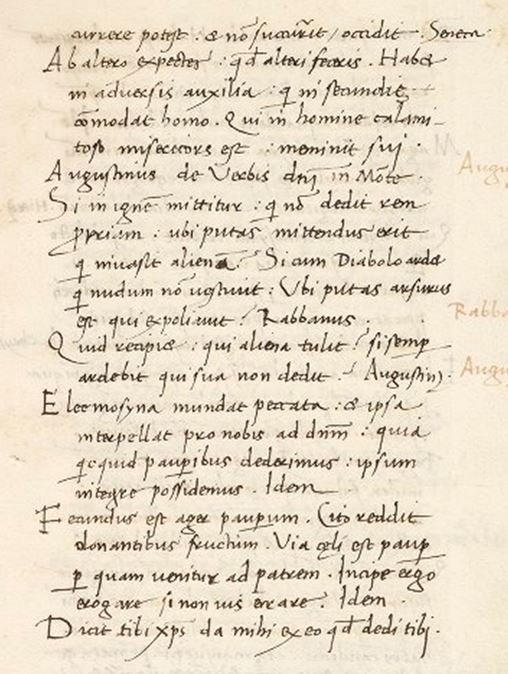 currere potest : & nō succurrit / occidit . Seneca .
Ab altero expectes : qd alteri feceris . Habes
in adversis auxilia : q in secundis
cōmodat homo . Qui in homine calami-
toso misericors est : meminit sui .
Augustinus de Verbis dni in Monte .
Si in ignē mittitur : q nō dedit rem
propriam : ubi putas mittendus erit
q invasit alienā ? Si cum Diabolo ardet
q nudum nō vestivit : Ubi putas arsurus
est qui expoliavit ? Rabbanus .
Quid recipiet : qui aliena tulit ? si semper
ardebit qui sua non dedit ? Augustin9 .
Eleemosyna mundat peccata : & ipsa
interpellat pro nobis ad dnm : quia
quicquid pauperibus dederimus : ipsum
integre possidemus . Idem
Fecundus est ager pauperum . Cito reddit
donantibus fructum . Via cęli est pauper
per quam venitur ad patrem . Incipe ergo
erogare si non vis errare . Idem .
Dicit tibi xps da mihi ex eo qd dedi tibi .
Augu
Rabba
Augu